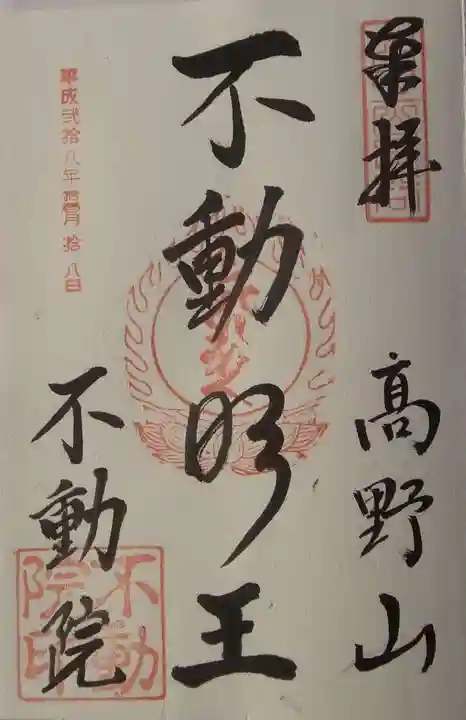 奉拝
高野山
不動明王
平成弐拾八年拾壱月拾八日
不動院
不動院印